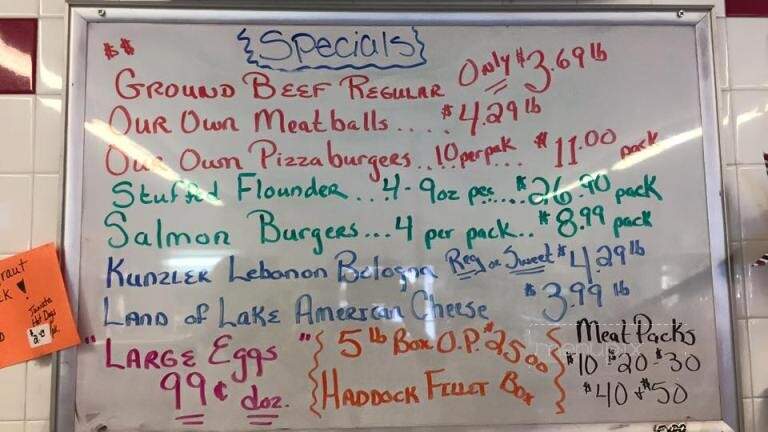 $$ {Specials}
Ground Beef Regular Only $3.69 lb
Our Own Meatballs.... $4.29 lb
Our Own Pizzaburgers..10 per pak... $11.00 pack
Stuffed Flounder...4-9oz pcs.... $26.90 pack
Salmon Burgers...4 per pack.. $8.99 pack
Kunzler Lebanon Bologna Reg or Sweet $4.29 lb
Land of Lake American Cheese $3.99 lb
"Large Eggs"
99¢ doz.
{5 lb Box O.P. $25.00}
{Haddock Fillet Box}
Meat Packs
$10 $20 $30
$40 $50
menupix
Hot Dogs